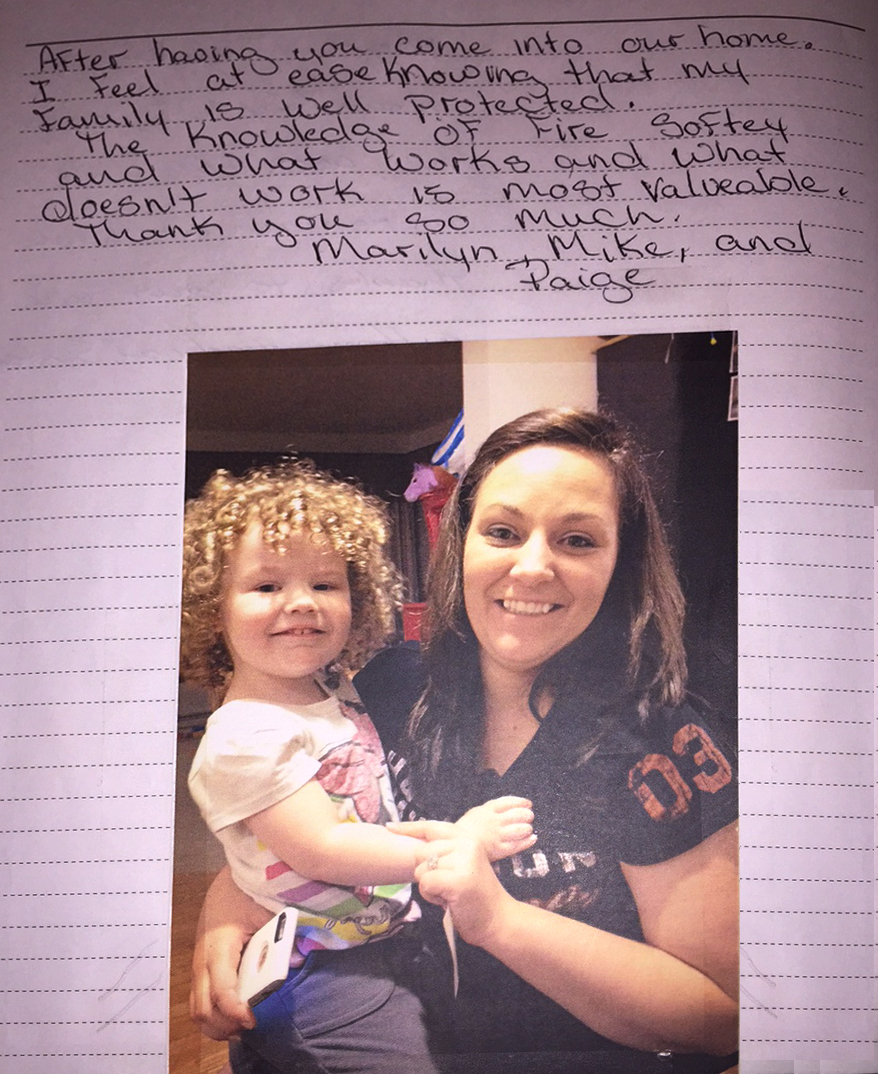 After having you come into our home.
I Feel at ease Knowing that my
Family is well Protected.
The Knowledge OF Fire Saftey
and what works and what
doesn't work is most valueable.
Thank you so much.
Marilyn, Mike, and
Paige
03